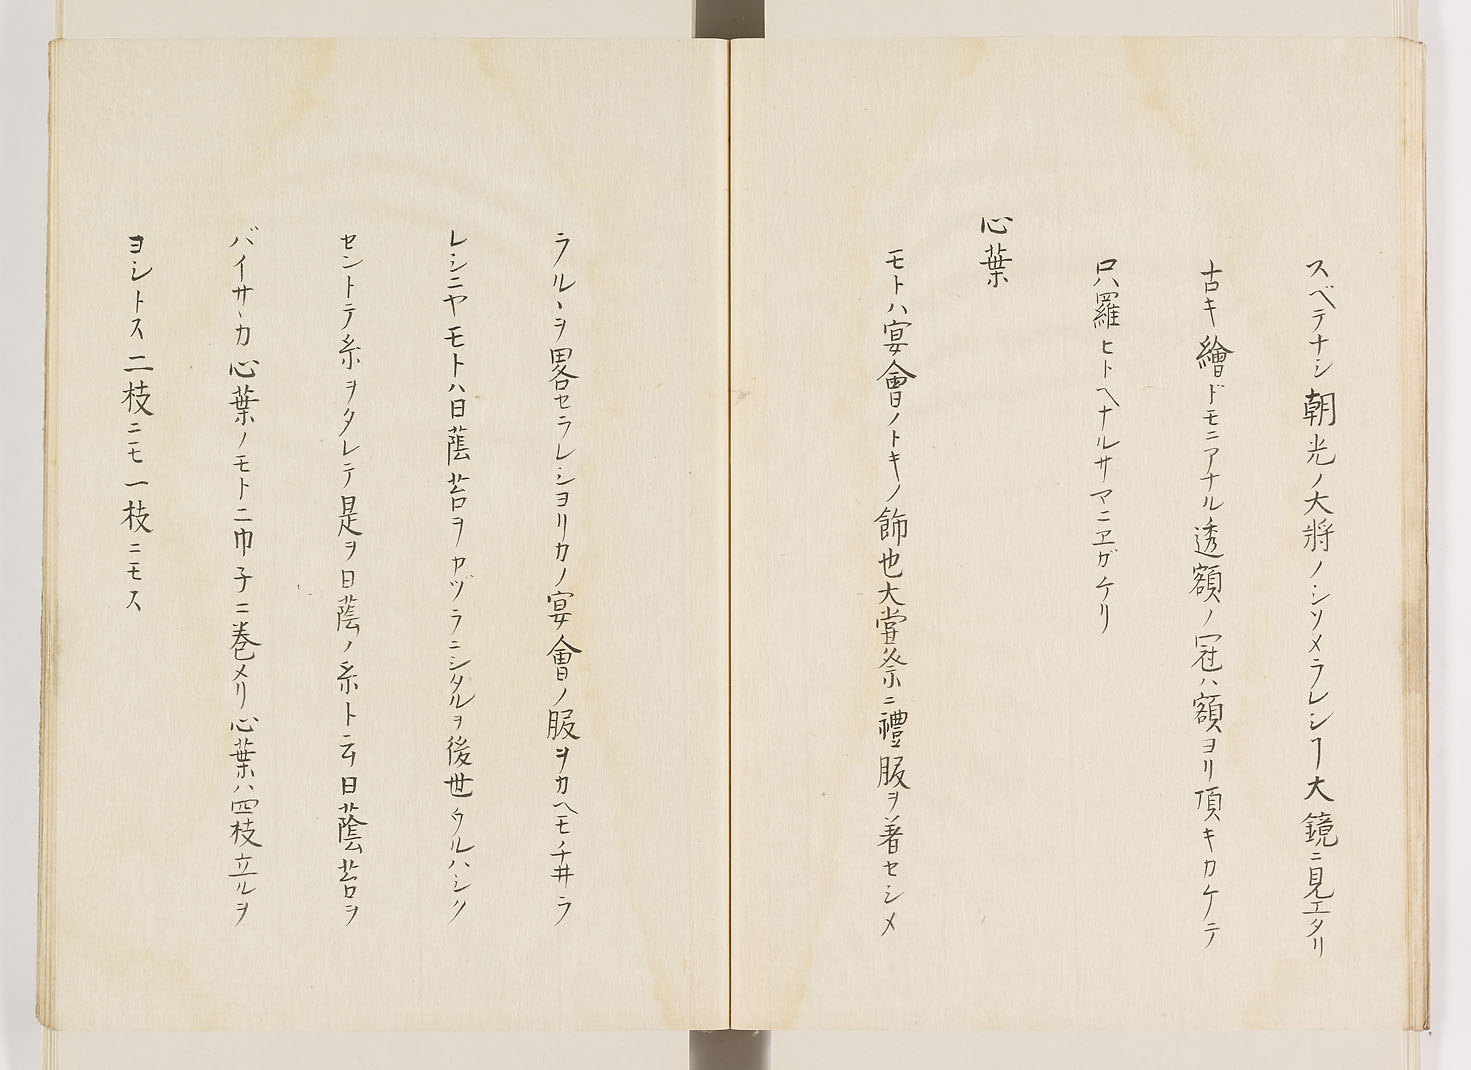 スベテナシ朝光ノ大將ノシソメラレシヿ大鏡ニ見エタリ
古キ繪ドモニアナル透額ノ冠ハ額ヨリ頂キカケテ
只羅ヒトヘナルサマニヱガケリ
心葉
モトハ宴會ノトキノ飾也大嘗祭ニ禮服ヲ着セシメ
ラルヽヲ畧セラレシヨリカノ宴會ノ服ヲカヘモチ井ラ
レシニヤモトハ日蔭苔ヲカヅラニシタルヲ後世ウルハシク
セントテ糸ヲタレテ是ヲ日蔭ノ糸ト云日蔭苔ヲ
バイサヽカ心葉ノモトニ巾子ニ巻メリ心葉ハ四枝立ルヲ
ヨシトス二枝ニモ一枝ニモス